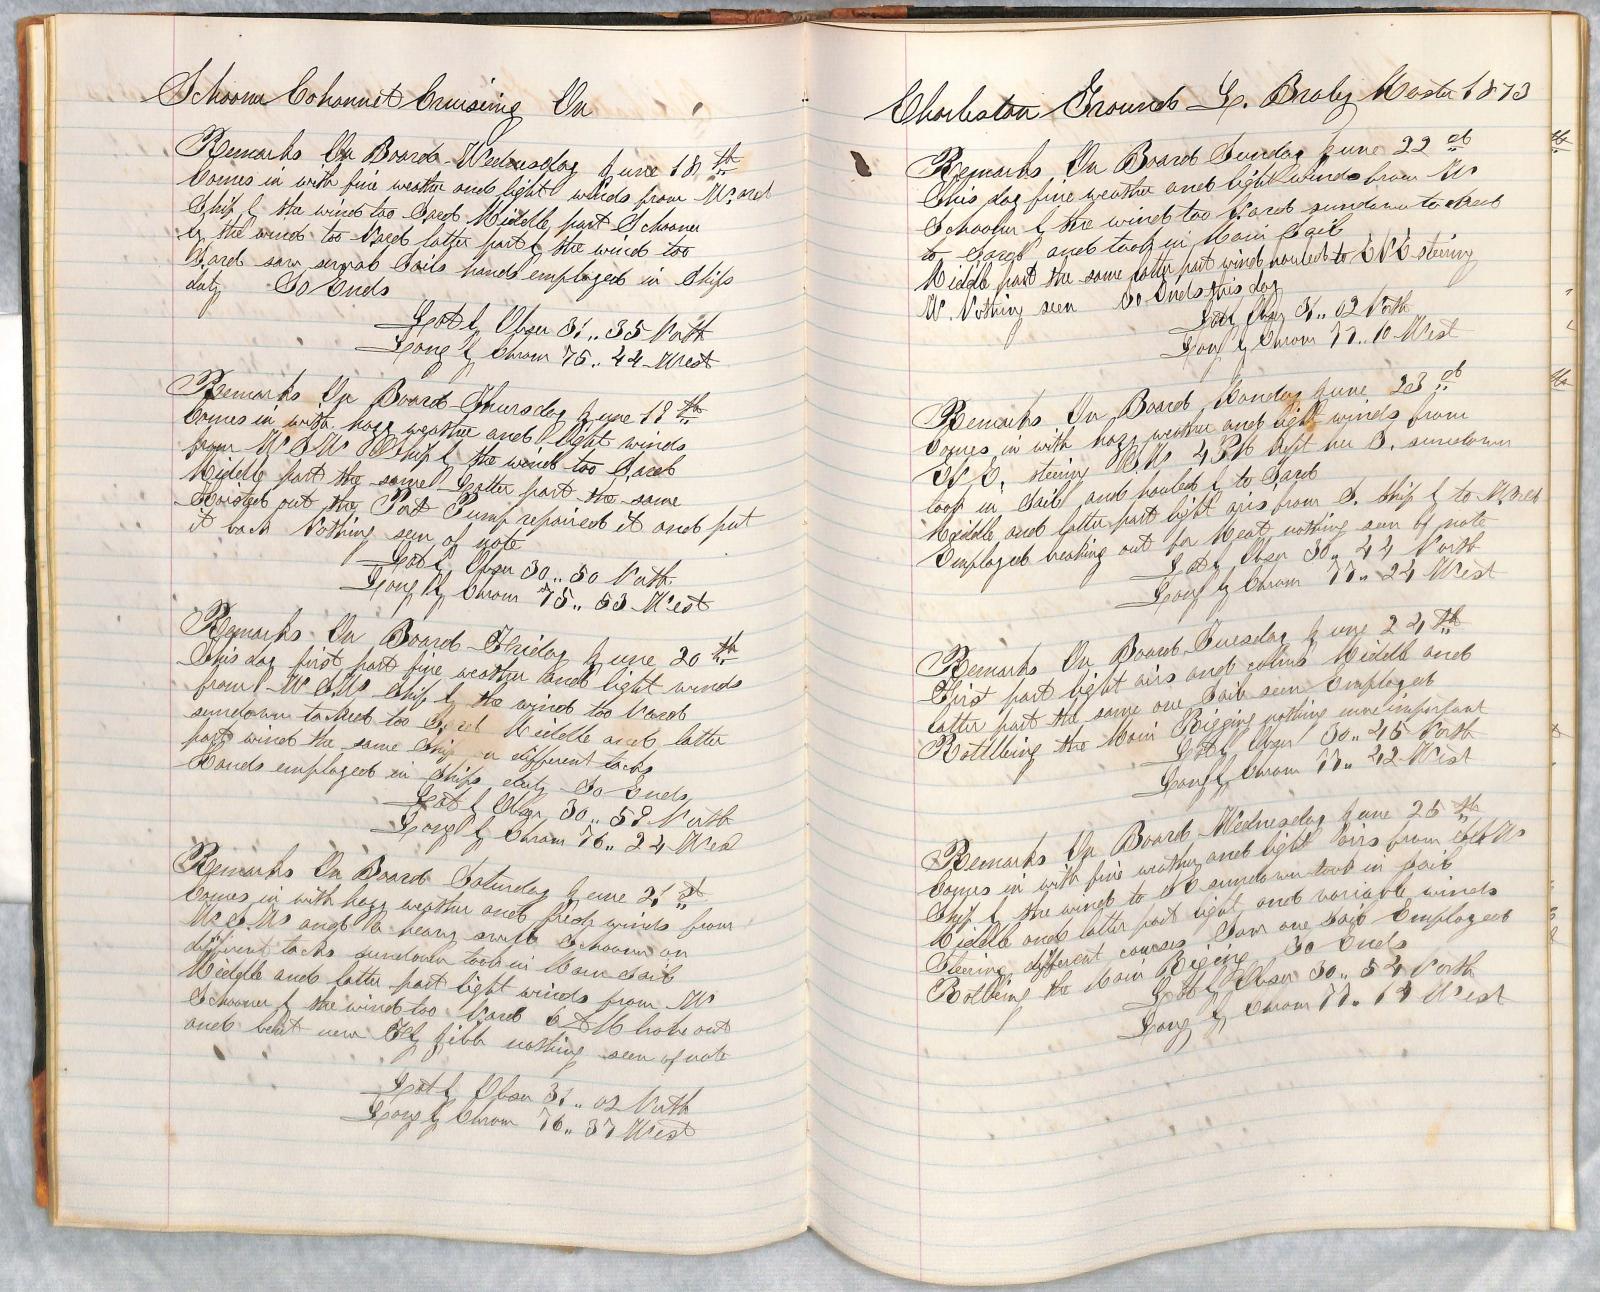 Schooner Cohannet Cruising On
Remarks On Board Wednesday June 18th
Comes in with fine weather and light winds from W and
Ship by the wind too Sard Middle part Schooner
by the wind too Nard latter part by the wind too
Sard saw several Sails hands employed in Ships
duty So Ends
Lat by Obser 31.. 35 North
Long by Chrom 75.. 44 West
Remarks On Board Thursday June 19th
Comes in with hazy weather and light winds
from W S W Ship by the wind too Sard
Middle part the same Latter part the same
Hoisted out the Port Pump repaired it and put
it back Nothing seen of note
Lat by Obser 30.. 50 North
Long by Chrom 75.. 53 West
Remarks On Board Friday June 20th
This day first part fine weather and light winds
from W S W Ship by the wind too Nard
sundown tacked too Sard Middle and latter
part wind the same Ship on different tacks
Hands employed in Ships duty So Ends
Lat by Obser 30.. 59 North
Long by Chrom 76.. 24 Wes
Remarks On Board Saturday June 21st
Comes in with hazy weather and fresh winds from
W S W and a heavy swell Schooner on
different tacks sundown took in Main Sail
Middle and latter part light winds from W
Schooner by the wind too Nard 6 AM broke out
and bent new Fly jibb nothing seen of note
Lat by Obser 31.. 02 North
Long by Chrom 76.. 37 West
Charleston Grounds Master 1873
Remarks On Board Sunday June 22 ond
This day fine weather and light winds from W
Schooner by the wind too Nard sundown tacked
to Sard and took in Main Sail
Middle part the same latter part wind hauled to steering
W. Nothing seen So Ends this day
Lat by Obser 31.. 02 North
Long by Chrom 77.. 10 West
Remarks On Board Monday June 23
Comes in with hazy weather and light winds from
steering 4 PM kept her S. sundown
took in Sail and hauled by to Sard
Middle and latter part light airs from S. Ship by to W
Employed breaking out for Meat nothing seen of note
Lat by Obser 30.. 44 North
Long by Chrom 77.. 24 West
Remarks On Board Tuesday June 24th
First part light airs and calms Middle and
latter part the same one Sail seen Employed
Rattling the Main Rigging nothing more important
Lat by Obser 30.. 45 North
Long by Chrom 77.. 42 West
Remarks On Board Wednesday June 25th
Comes in with fine weather and light airs from
Ship by the wind to sundown took in Sail
Middle and latter part light and variable winds
Steering different courses Saw one Sail Employed
Rattling the Main Riging So Ends
Lat by Obser 30.. 54 North
Long by Chrom 77.. 19 West